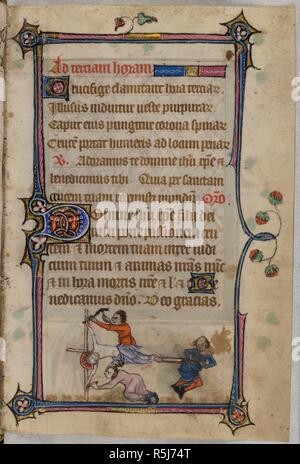 Ad terciam horam
Crucifige clamitant hora terciar.
Illusus induitur veste purpurar.
Caput eius pungitur corona spinar.
Crucem portat humeris ad locum penar
V. Adoramus te domine ihu xpe &
benedicimus tibi. Quia per sanctam
crucem tuam redemisti mundum. Oro.
Domine ihu xpe fili dei
vivi pone passionem cru
cem & mortem tuam inter iudi
cium tuum & animas nras nunc
& in hora mortis nre & c. Be
nedicamus dno. Deo gracias.
alamy
Image ID: R5J74T
www.alamy.com